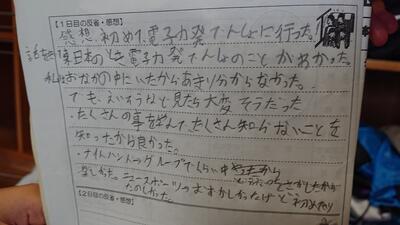 【1日目の反省・感想】
感想、初めて、電子力発でんしょに行った。
話を聞東日本の
電子力発でんしょのことがわかった。
私はおなかの中にいたからあまり分からなかった。
でも、えいぞうなど見たら大変そうだった
・たくさんの事を学んで、たくさん知らないことを
知ったから良かった。
・ナイトハントのグループで
楽しかった。ニュースポーツの
むずかしかったけど初めたり
たのしかった。
【2日目の反省・感想】